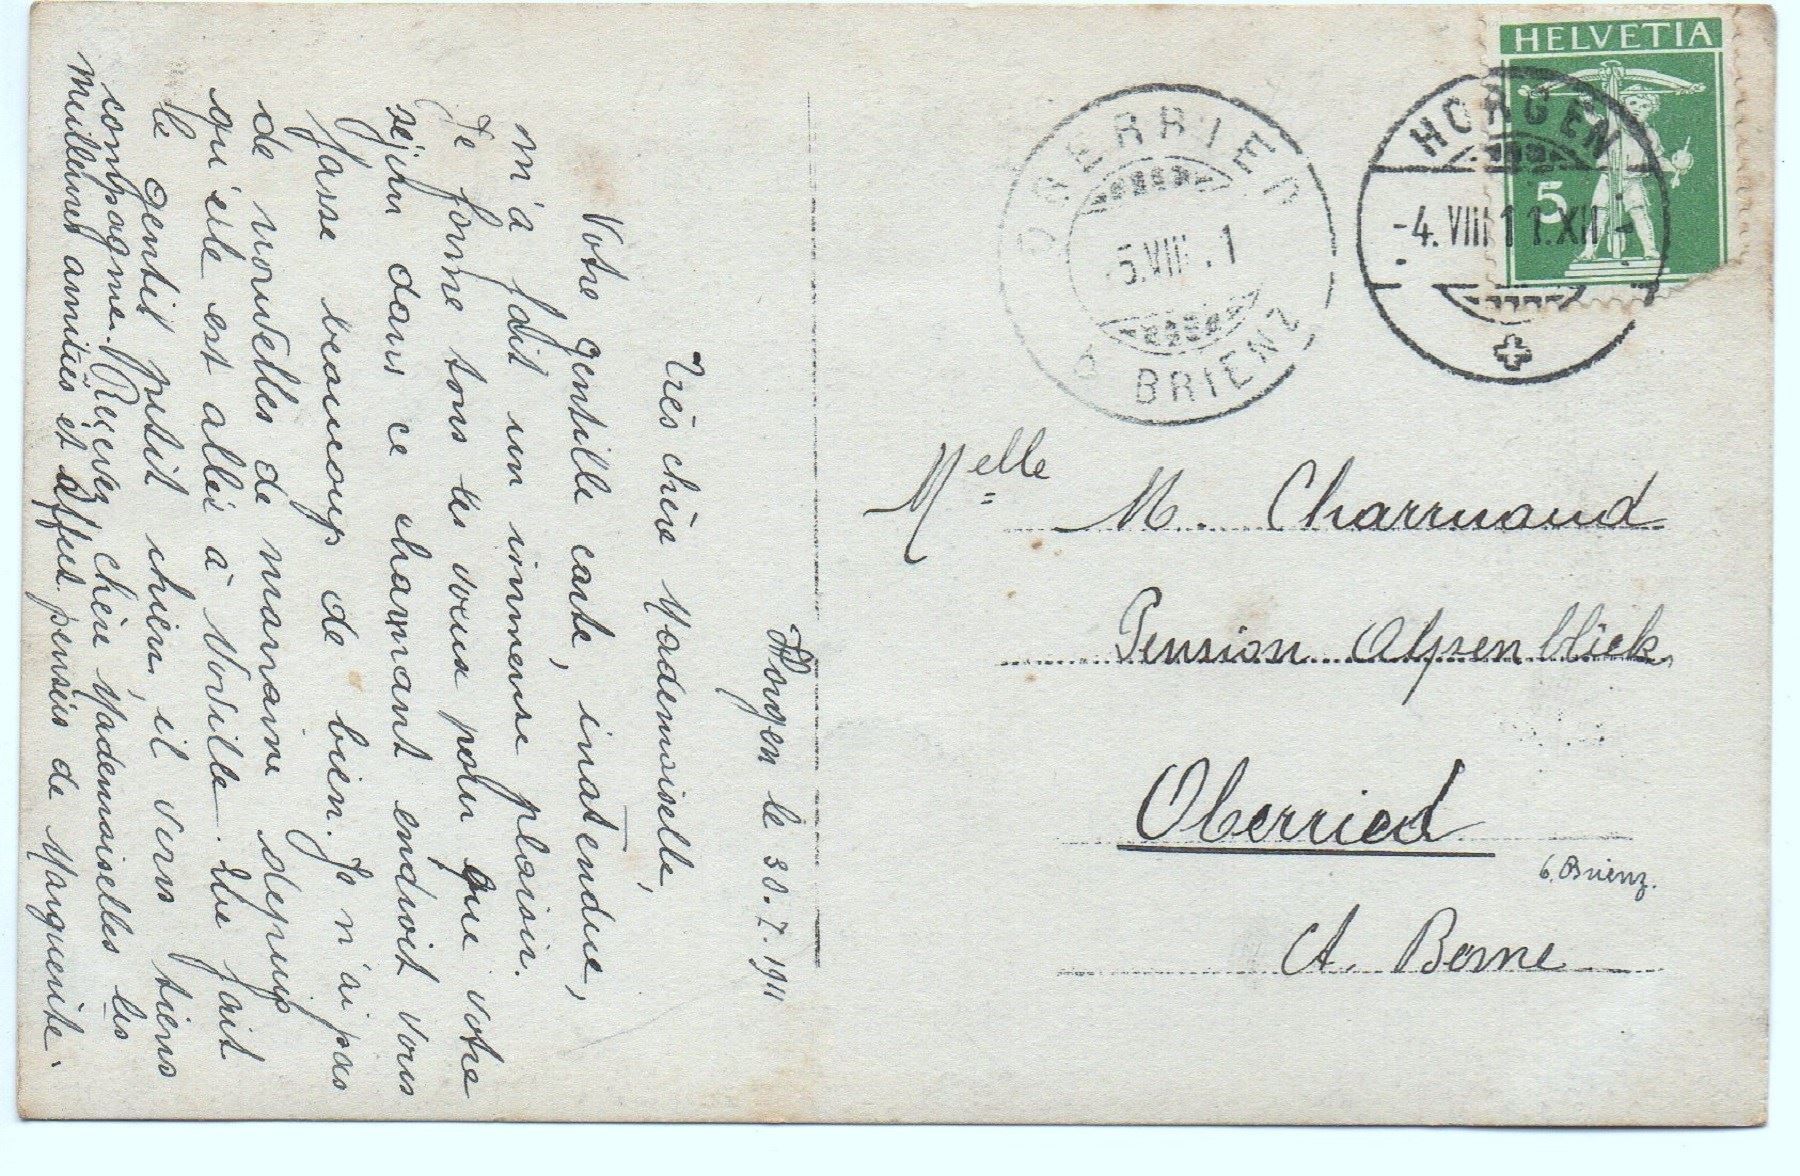 HELVETIA
5
HORGEN
-4. VIII 11. XII-
OBERRIED
5. VIII . 1
BRIENZ
Melle M. Charruaud
Pension Alpenblick,
Oberried
b. Brienz.
Ct. Berne
Horgen le 30. 7. 1911
Très chère Mademoiselle,
Votre gentille carte, inatendue,
m'a fait un immense plaisir.
Je forme tous les voeux pour que votre
séjour dans ce charmant endroit vous
fasse beaucoup de bien. Je n'ai pas
de nouvelles de maman depuis
qu'elle est allée à Vorille. Lui fait
le gentil petit chien, il vous tiens
compagne. Recevez chère Mademoiselles les
meilleures amitiés et affect. pensées de Marguerite.